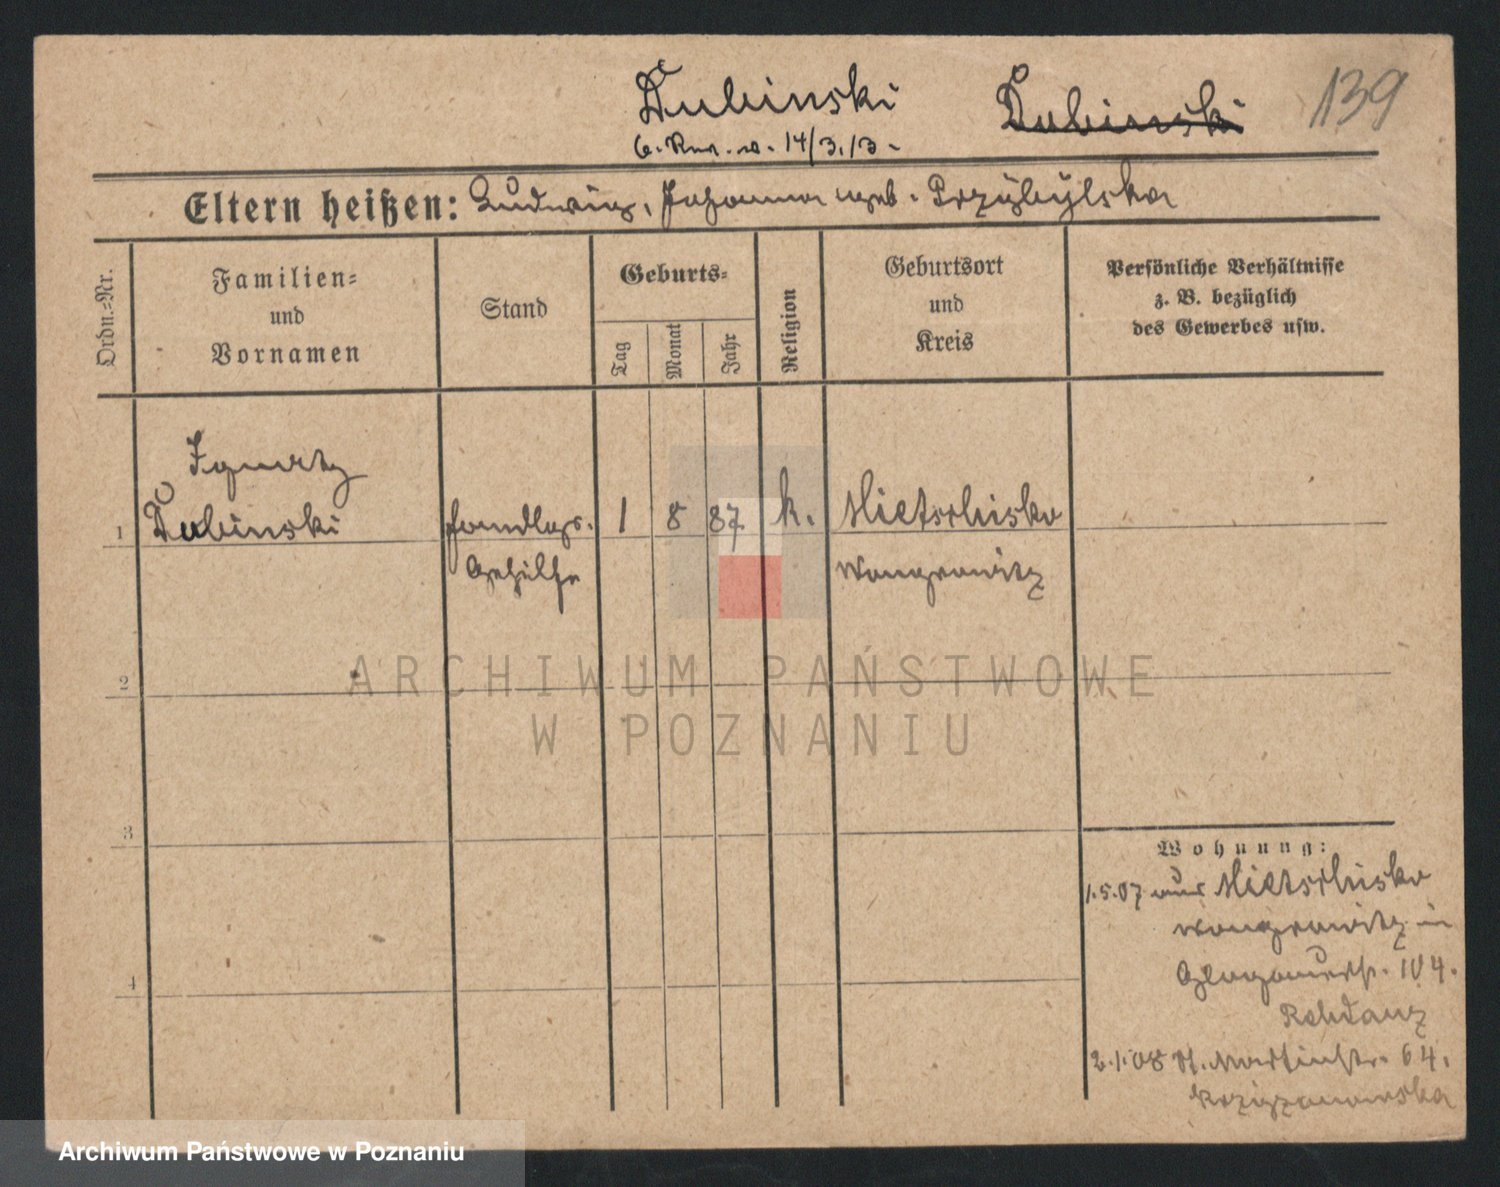 Dubinski Dubinski 139
14/3.13.
Eltern heißen: Ludwig, Johanna geb. Przybylska
Ordn.-Nr.
Familien-
und
Vornamen
Stand
Geburts-
Tag
Monat
Jahr
Religion
Geburtsort
und
Kreis
Persönliche Verhältnisse
z. B. bezüglich
des Gewerbes usw.
Ignatz
1 Dubinski Handlgs. 1 8 87 k. Mietschisko
Gehilfe Wongrowitz
2
3
4
Wohnung:
1.5.07 aus Mietschisko
Wongrowitz in
Glogauerstr. 104.
2.1.08 St. Martinstr. 64.
ARCHIWUM PAŃSTWOWE
W POZNANIU
Archiwum Państwowe w Poznaniu